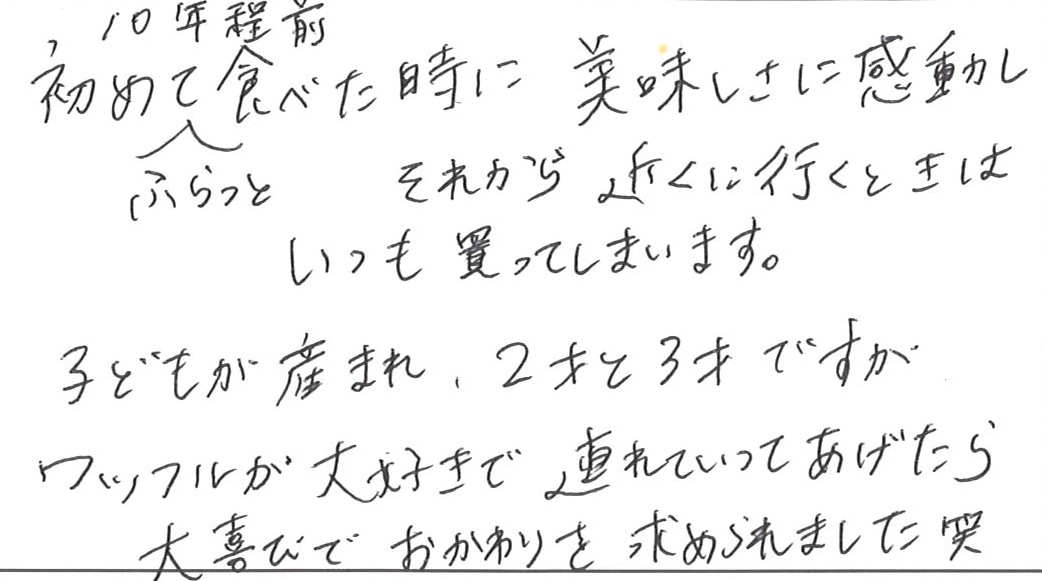 , 10年程前
初めて食べた時に 美味しさに感動し
ふらっと それから 近くに行くときは
いつも買ってしまいます。
子どもが産まれ、2才と3才ですが
ワッフルが大好きで連れていってあげたら
大喜びでおかわりを求められました笑